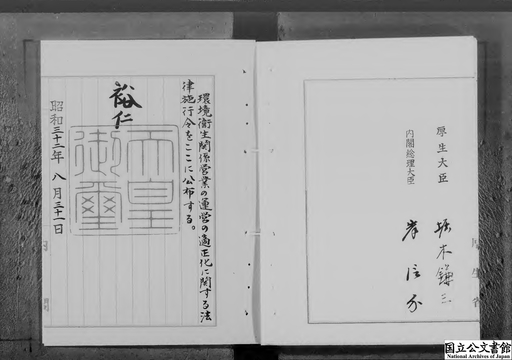 厚生大臣 堀木鎌三
内閣総理大臣 岸信介
環境衛生関係営業の運営の適正化に関する法
律施行令をここに公布する。
裕仁
天皇
御璽
昭和三十二年 八月三十一日
国立公文書館
National Archives of Japan